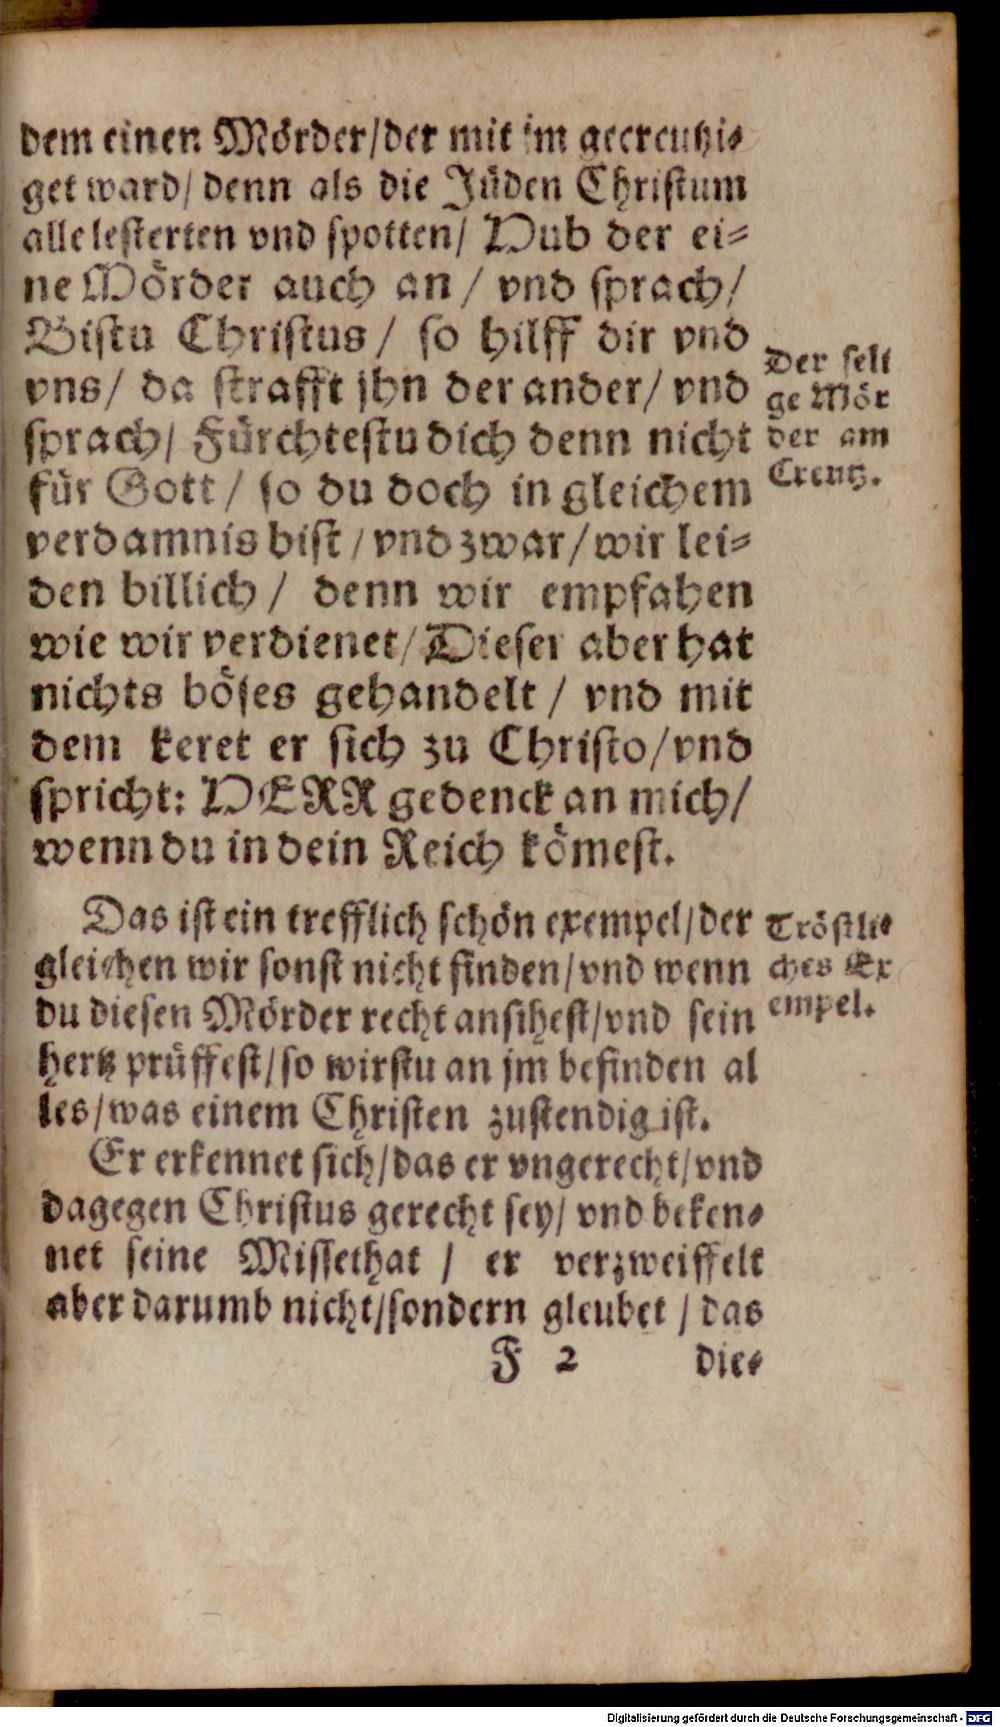 dem einen Mörder/der mit im gecreutzi-
get ward/ denn als die Jüden Christum
alle lesterten vnd spotten/ Hub der ei-
ne Mörder auch an / vnd sprach/
Bistu Christus / so hilff dir vnd
vns/ da strafft jhn der ander/ vnd
sprach/ Fürchtestu dich denn nicht
für Gott / so du doch in gleichem
verdamnis bist / vnd zwar/ wir lei-
den billich / denn wir empfahen
wie wir verdienet/ Dieser aber hat
nichts böses gehandelt / vnd mit
dem keret er sich zu Christo/ vnd
spricht: HERR gedenck an mich/
wenn du in dein Reich kömest.
Der seli
ge Mör
der am
Creutz.
Das ist ein trefflich schön exempel/ der
gleichen wir sonst nicht finden/ vnd wenn
du diesen Mörder recht ansihest/ vnd sein
hertz prüffest/ so wirstu an jm befinden al
les/ was einem Christen zustendig ist.
Tröstli-
ches Ex
empel.
Er erkennet sich/ das er vngerecht/ vnd
dagegen Christus gerecht sey/ vnd beken-
net seine Missethat / er verzweiffelt
aber darumb nicht/ sondern gleubet / das
F 2 die-
Digitalisierung gefördert durch die Deutsche Forschungsgemeinschaft - DFG